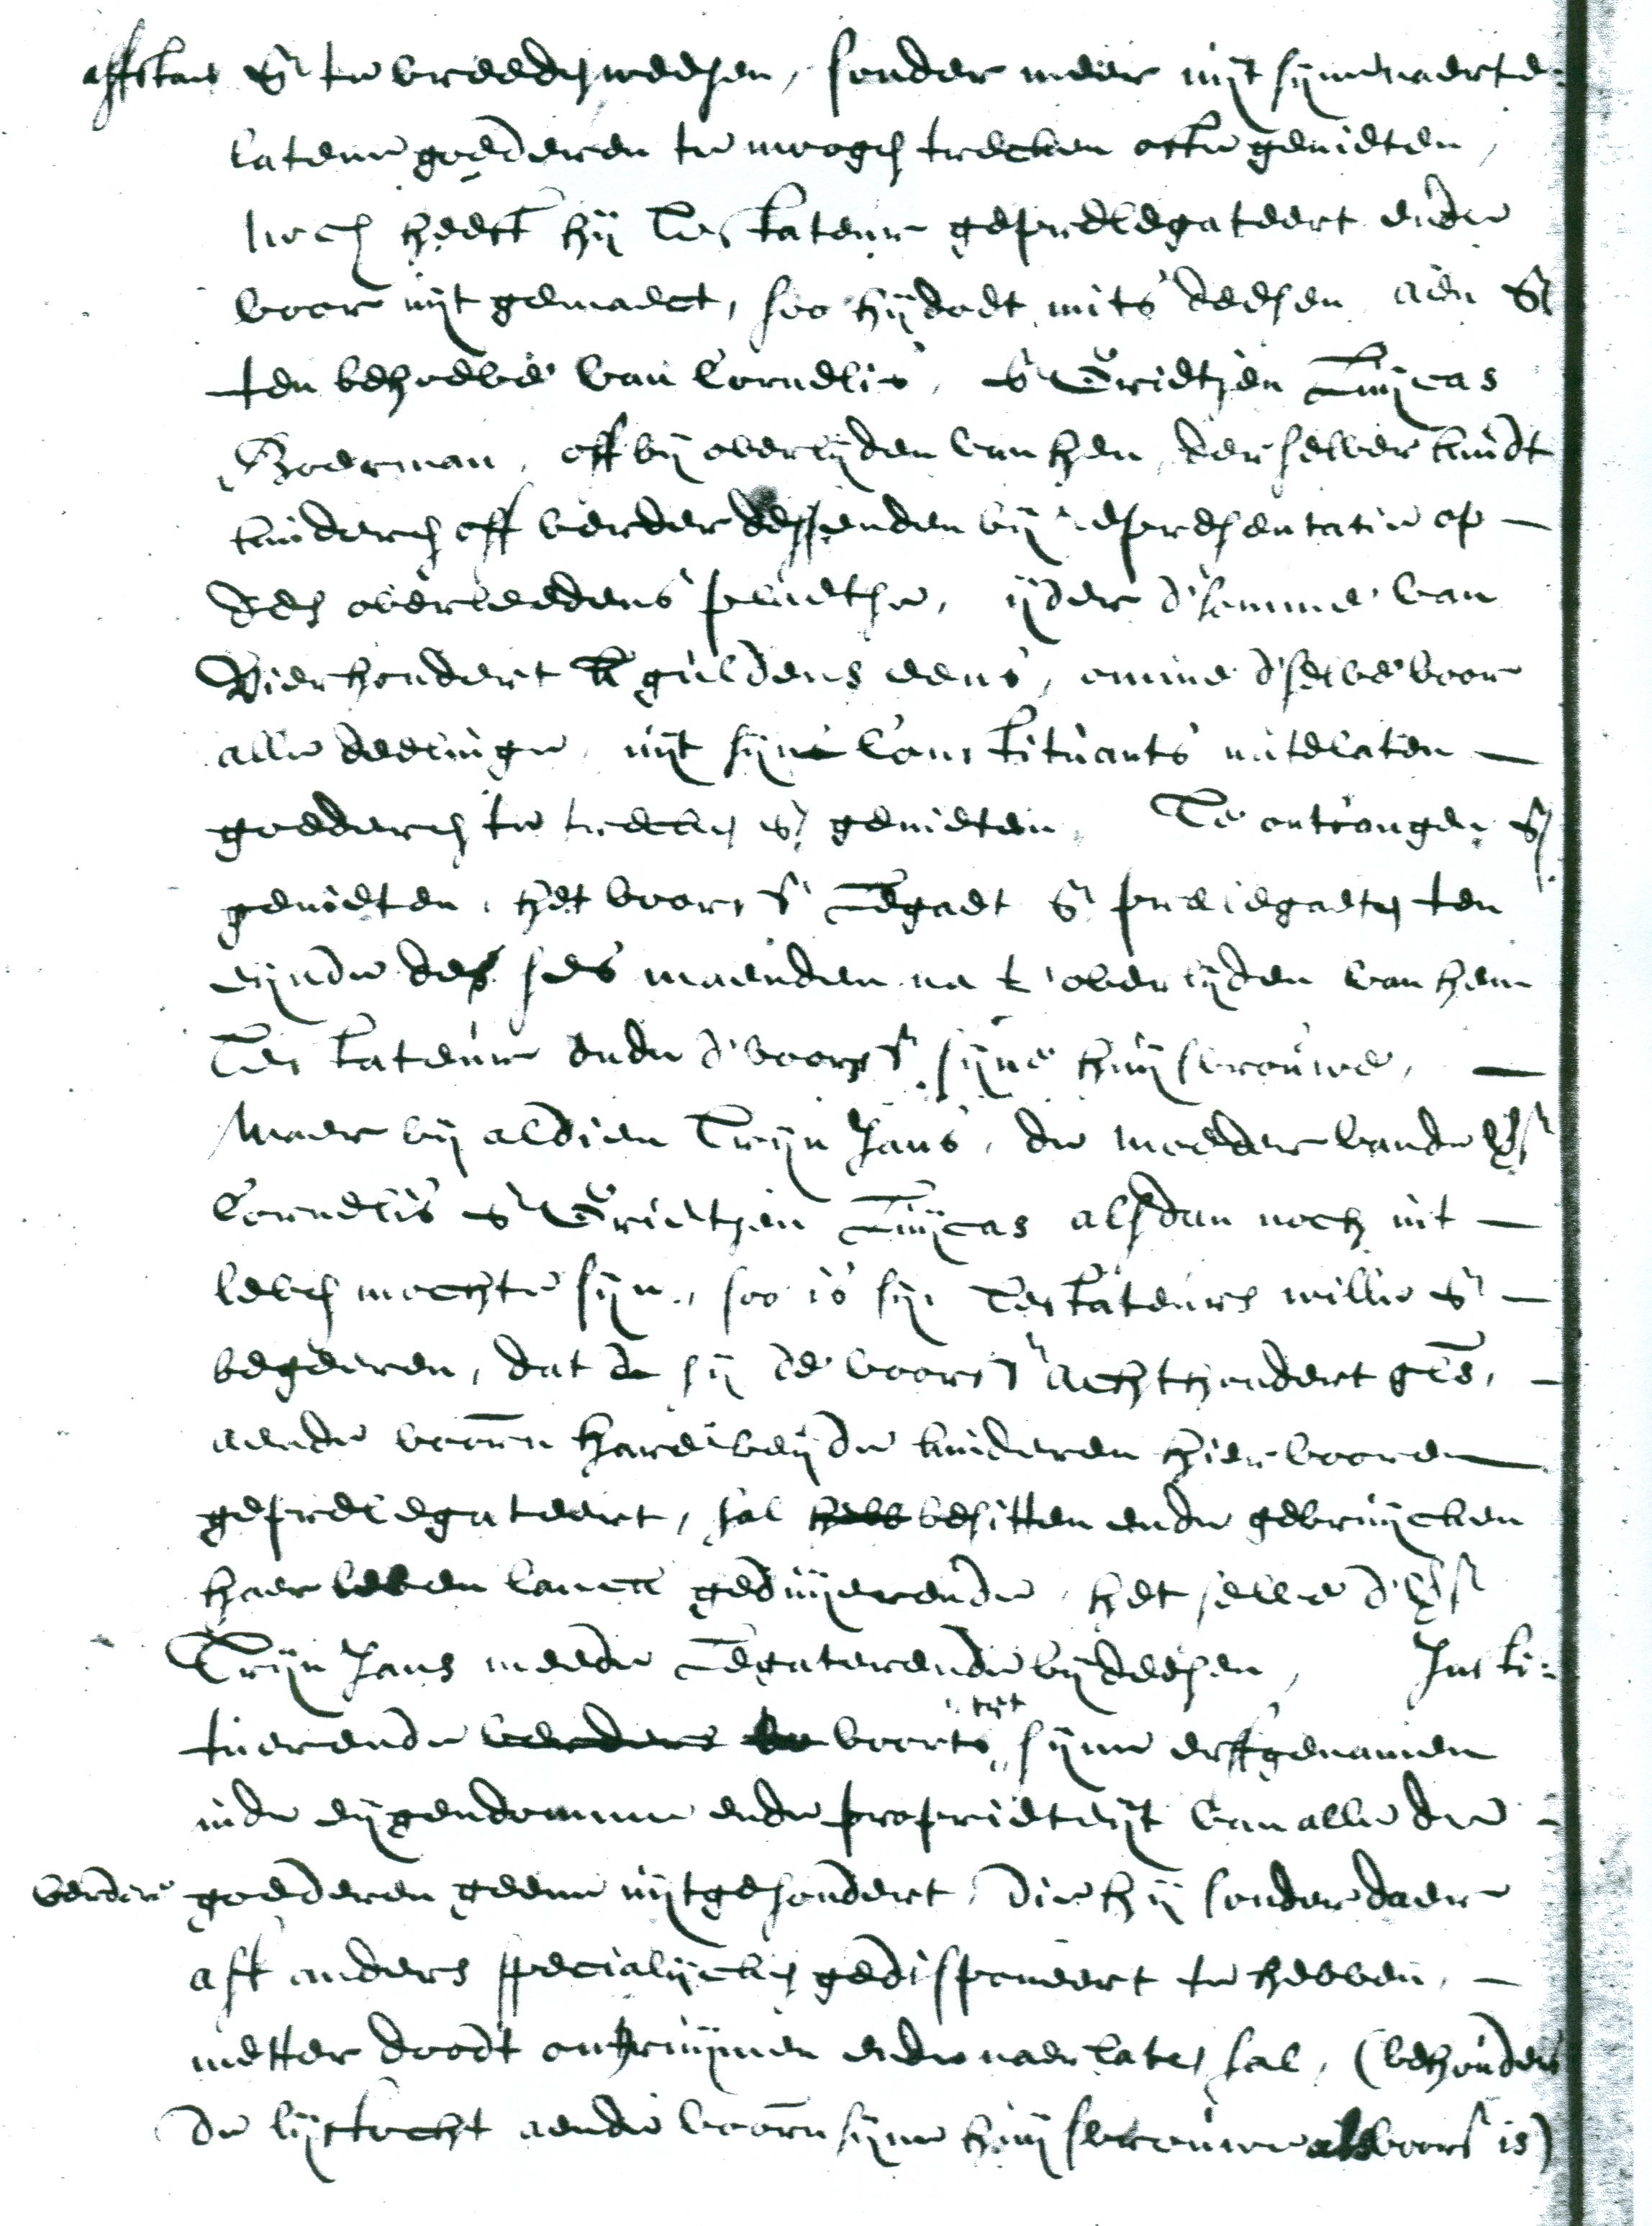 affstaen & te vreeden weesen, sonder meer uijt sijne naerte
laten goederen te moogen trecken ofte genieten,
Noch heeft hij Testateur geprelegateert ende
voor uijt gemaect, soo hij doet mits deesen aen &
ten behoeve van Cornelis, & Grietjen Luijcas
Boerman, off bij overlijden van hen, der selver kindt
kinderen off verder dessenden bij representatie op
des overleedens plaetse, ijder d'somme van
Vierhondert guldens eens, omme d'selve voor
alle deelinge, uijt sijn Constituants natelaten
goederen te trecken & genieten, Te ontfangen &
genieten, het voors Legaet & prelegaeten ten
eijnde des ses maenden na t'overlijden van hem
Testateur ende d'voors sijne huijsvrouwe,
Maer bij aldien Trijn Jans, de moeder vande vs
Cornelis & Grietjen Luijcas alsdan noch int
leven mochte sijn, soo is sijn Testateurs wille &
begeeren, dat sij de voors achthondert gls,
aende voorn hare beijde kinderen hier vooren
geprelegateert, sal besitten ende gebruijcken
haer leven lanck geduijerende, het selve d'vs
Trijn Jans meede Legaterende bij deesen, Insti-
tuerende verders voorts tot sijne erffgenamen
inde eijgendomme ende proprieteijt van alle die
verdere goederen geene uijtgesondert, die hij sonder daer
aff anders specialijcken gedisponeert te hebben,
metter doodt ontruijmen ende naerlaten sal, (behouden
de lijftocht aende voorn sijne huijsvrouwe als voors is)